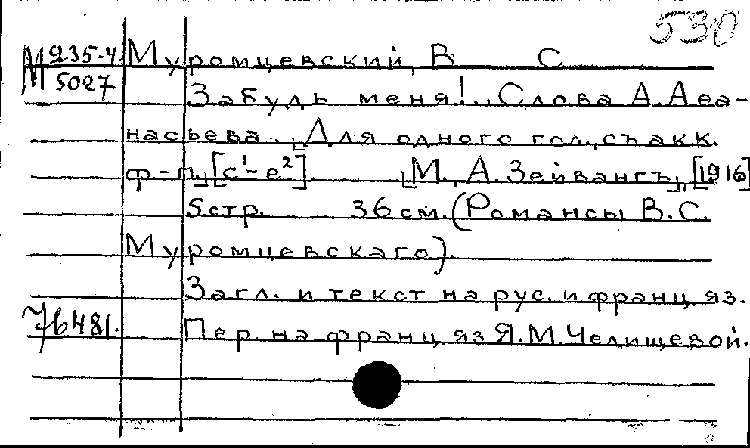 530
М 235-4 Муромцевский, В С
5027
Забудь меня!.. Слова А. Аѳа-
насьева. Для одного гол., съ акк.
ф-п. [c¹-e²]. М., А. Зейвангъ, [1916]
5 стр. 36 см. (Романсы В. С.
Муромцевскаго).
Загл. и текст на рус. и франц. яз.
76481. Пер. на франц. яз Я. М. Челищевой.